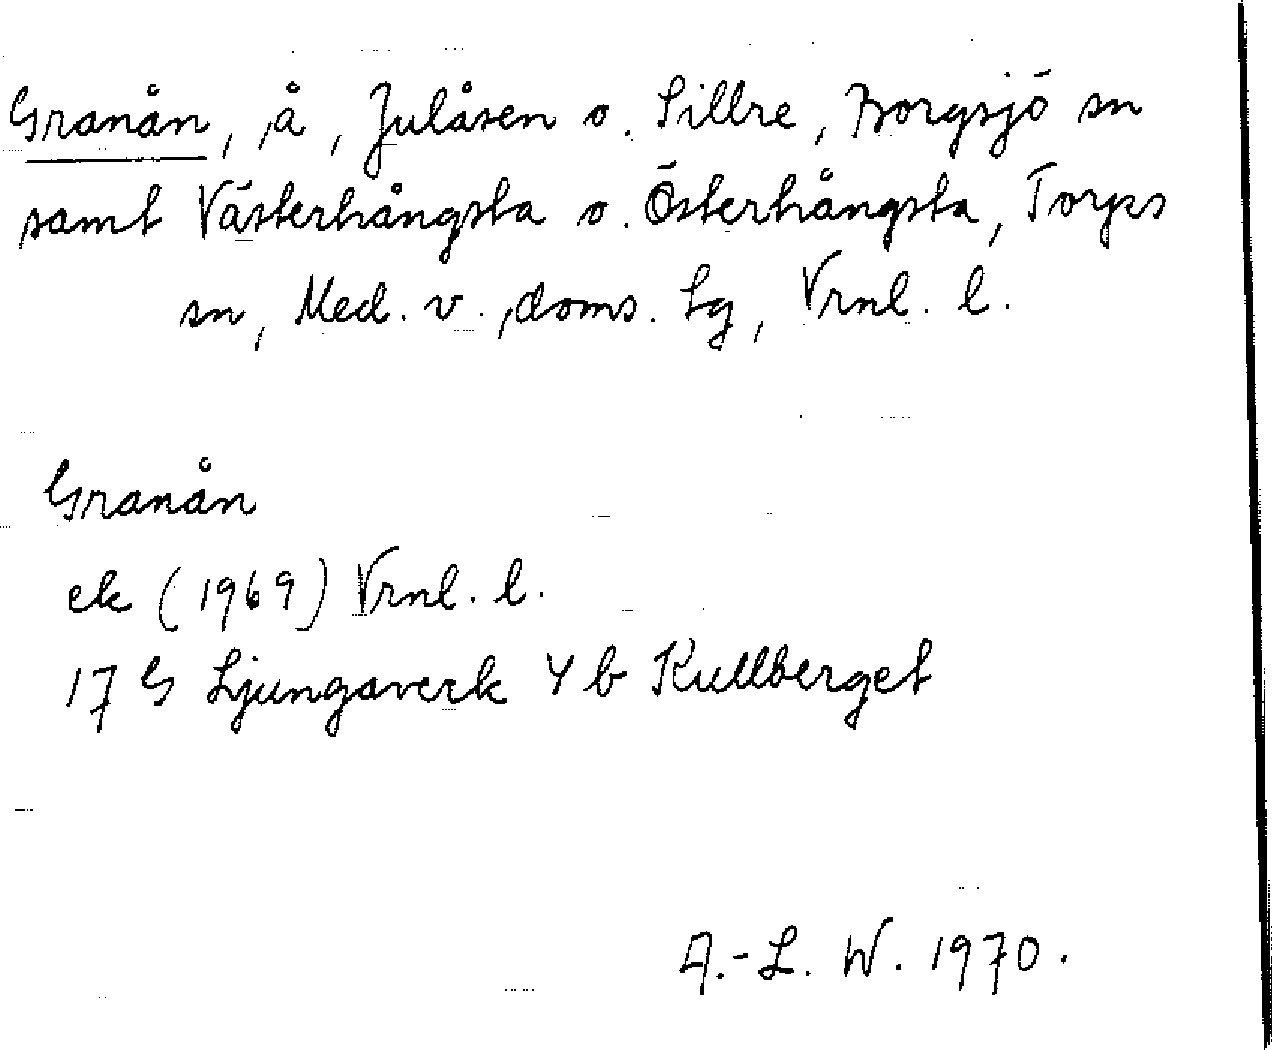 Granån, å, Julåsen o. Sillre, Borgsjö sn
samt Västerhångsta o. Österhångsta, Torps
sn, Med. v. doms. lg, Vrnl. l.
Granån
ek (1969) Vrnl. l.
17 G Ljungaverk 4 b Kullberget
A.-L. W. 1970.